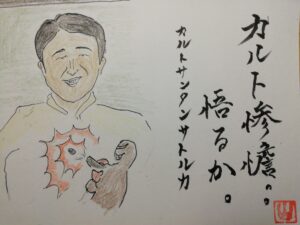 カルト惨憺。
悟るか。
カルトサンタンサトルカ